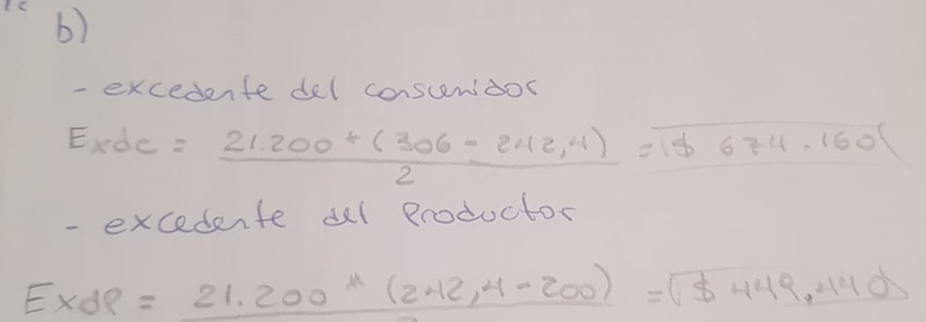 b)
- excedente del consumidor
Exdc = 21.200 * (306 - 242,4) = $ 674.160
2
- excedente del Productor
ExdP = 21.200 * (242,4 - 200) = $ 449,440